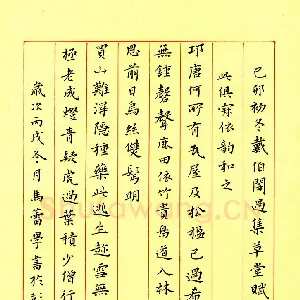 己卯初冬戴伯闇過集草堂賦
此俱寂依韵和之
邛唐何所有瓦屋及松楹已過希
無鐘磬聲麻田依竹貴鳥道入林
思前日烏絲雙鬢明
買山難洋隱種藥此逃生迹雪無
極老成燈青疑虎過葉積少僧行
歲次丙戌冬月馬蕾學書於